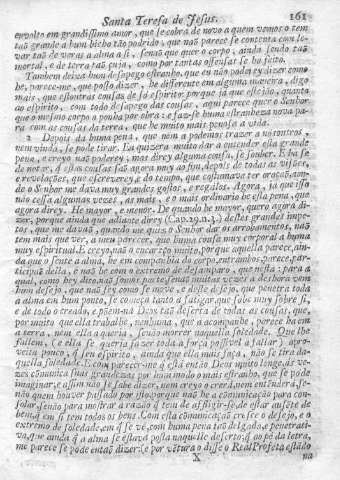 Santa Teresa de Jesus. 161
envolto em grandissimo amor, que se cobra de novo a quem vemos o tem
taõ grande a hum bicho taõ podrido; que naõ parece se contenta com le-
var taõ de veras a alma a si, senaõ que quer o corpo, ainda sendo taõ
mortal, e de terra taõ çuja, como por tantas offensas se ha feito.
Tambem deixa hum desapego estranho, que eu não poderey dizer como
he, parece-me, que posso dizer, he differente em alguma maneira, digo
mais, que est'outras cousas de só espirito; porque já que estejão, quanto
ao espirito, com todo desapego das cousas, aqui parece quer o Senhor,
que o mesmo corpo o ponha por obra: e faz-se huma estranheza nova pa-
ra com as cousas da terra, que he muito mais penosa a vida.
2 Depois dá huma pena, que nem a podemos trazer a nós outros,
nem vinda, se póde tirar. Eu quizera muito dar a entender esta grande
pena, e creyo naõ poderey, mas direy alguma cousa, se souber. E ha se
de notar, q estas cousas saõ agora muy ao fim, depois de todas as visões,
e revelações, que escreverey, e do tempo, que costumava ter oraçaõ, aon-
de o Senhor me dava muy grandes gostos, e regalos. Agora, já que isso
não cessa algumas vezes, as mais, e o mais ordinario he esta pena, que
agora direy. He mayor, e menor. De quando he mayor, quero agora di-
zer, porque ainda que adiante direy (Cap. 29. n. 5.) destes grandes impe-
tos, que me davaõ, quando me quiz o Senhor dar os arrobamentos, naõ
tem mais que ver, a meu parecer, que huma cousa muy corporal a huma
muy espiritual. E creyo, naõ o encareço muito, porque aquella parece, ain-
da que o sente a alma, he em companhia do corpo, entrambos, parece, par-
ticipaõ della, e naõ he com o extremo de desamparo, que nesta: para a
qual, como hey dito, naõ somos parte, senaõ muitas vezes a deshora vem
hum desejo, que naõ sey como se move, e deste desejo, que penetra toda
a alma em hum ponto, se começa tanto a fatigar, que sobe muy sobre si,
e de todo o creado, e põem-na Deos taõ deserta de todas as cousas, que,
por muito que ella trabalhe, nenhuma, que a acompanhe, parece ha em
a terra, nem ella a queria, senaõ morrer naquella soledade. Que lhe
fallem, (e ella se queria fazer toda a força possivel a fallar) apro-
veita pouco, q seu espirito, ainda que ella mais faça, não se tira da-
quella soledade. E com parecer-me q está então Deos muito longe, ás ve-
zes cõmunica suas grandezas por hum modo o mais estranho, que se póde
imaginar, e assim não se sabe dizer, nem creyo o crerá, nem entenderá, se-
não quem houver passado por isso; porque naõ he a cõmunicação para con-
solar, senão para mostrar a razão q tem de affligir-se, de estar ausẽte de
bem, q em si tem todos os bens. Com esta cõmunicaçaõ cresce o desejo, e o
extremo de soledade, em q se vê, com huma pena taõ delgada, e penetrati-
va, que ainda q a alma se estava posta naquelle deserto; q ao pé da letra,
me parece se póde então dizer: (e por vẽtura o disse o Real Profeta estãdo
X na